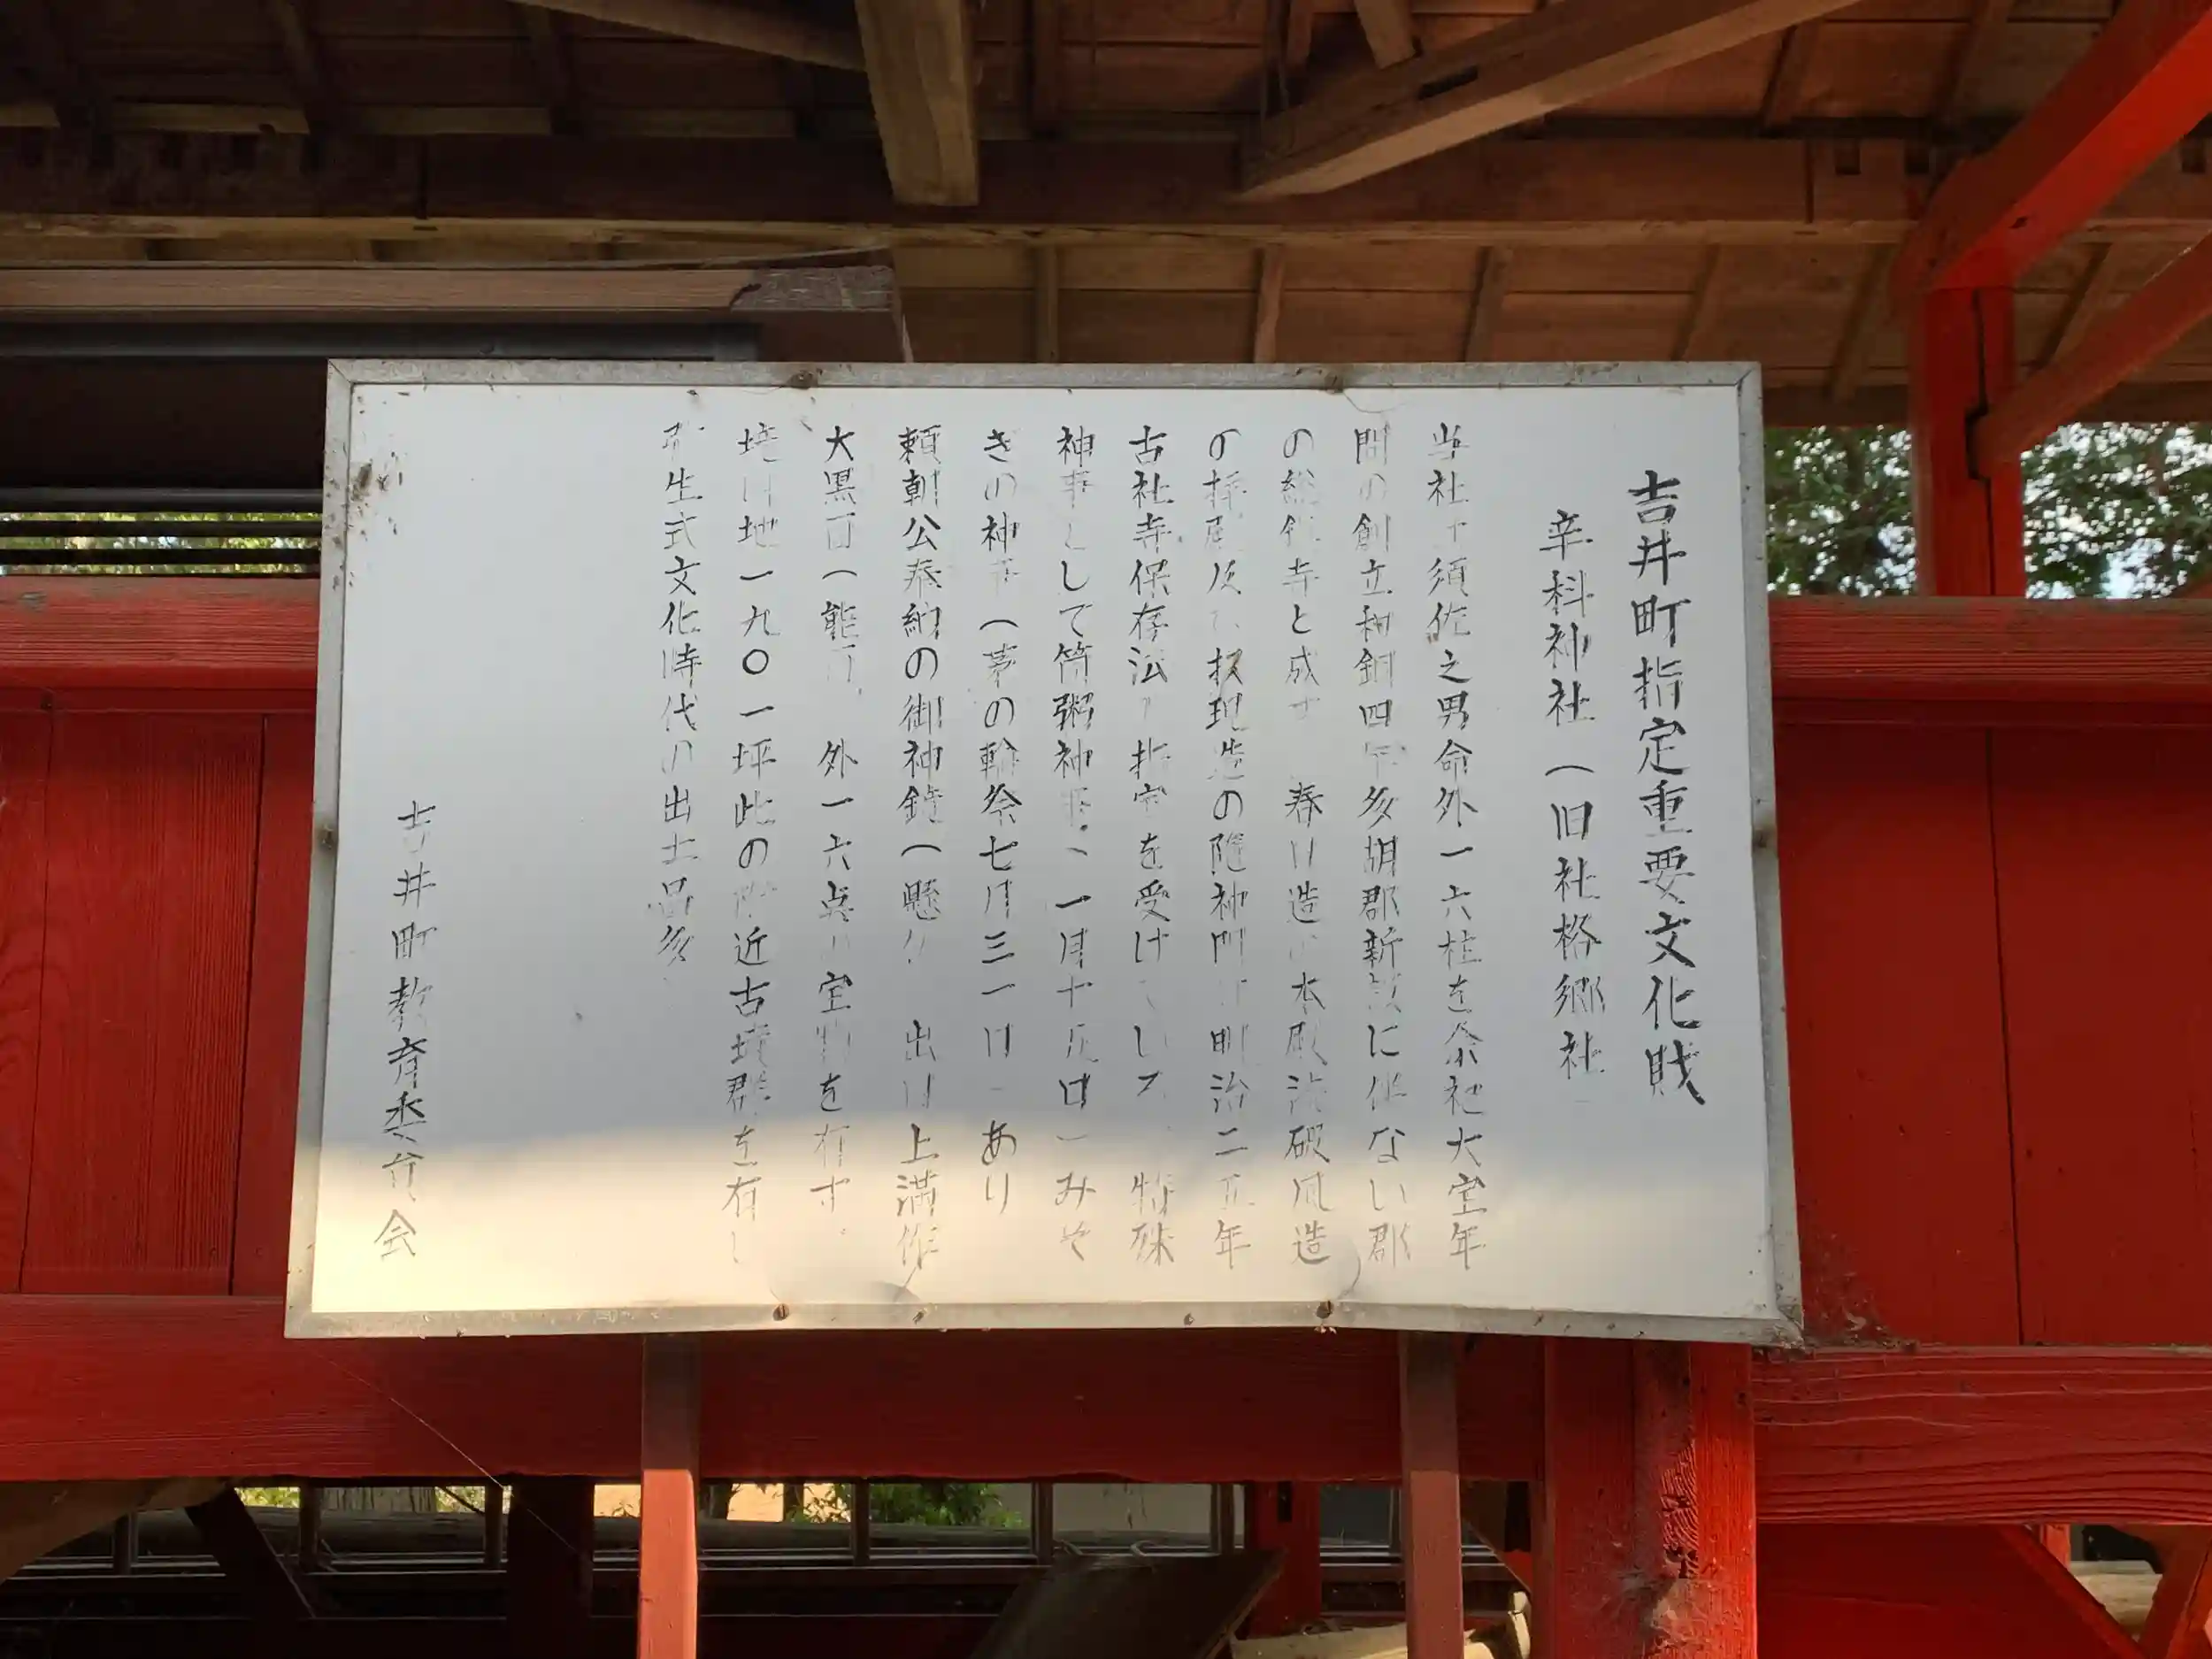 吉井町指定重要文化財
辛科神社（旧社格郷社
当社は須佐之男命外一六柱を祭祀大宝年
間の創立和銅四年多胡郡新設に伴ない郡
の総鎮守と成す 春日造 本殿 破風造
の拝殿及び 権現造の随神門は明治二五年
古社寺保存法 指定を受けている 特殊
神事として筒粥神事 一月十五日 みそ
ぎの神事（茅の輪祭七月三一日 あり
頼朝公奉納の御神鏡（懸 出目上満作
大黒面（能面 外一六点 宝物を有す。
境内地一九〇一坪此の附近古墳群を有し
弥生式文化時代の出土品多
吉井町教育委員会